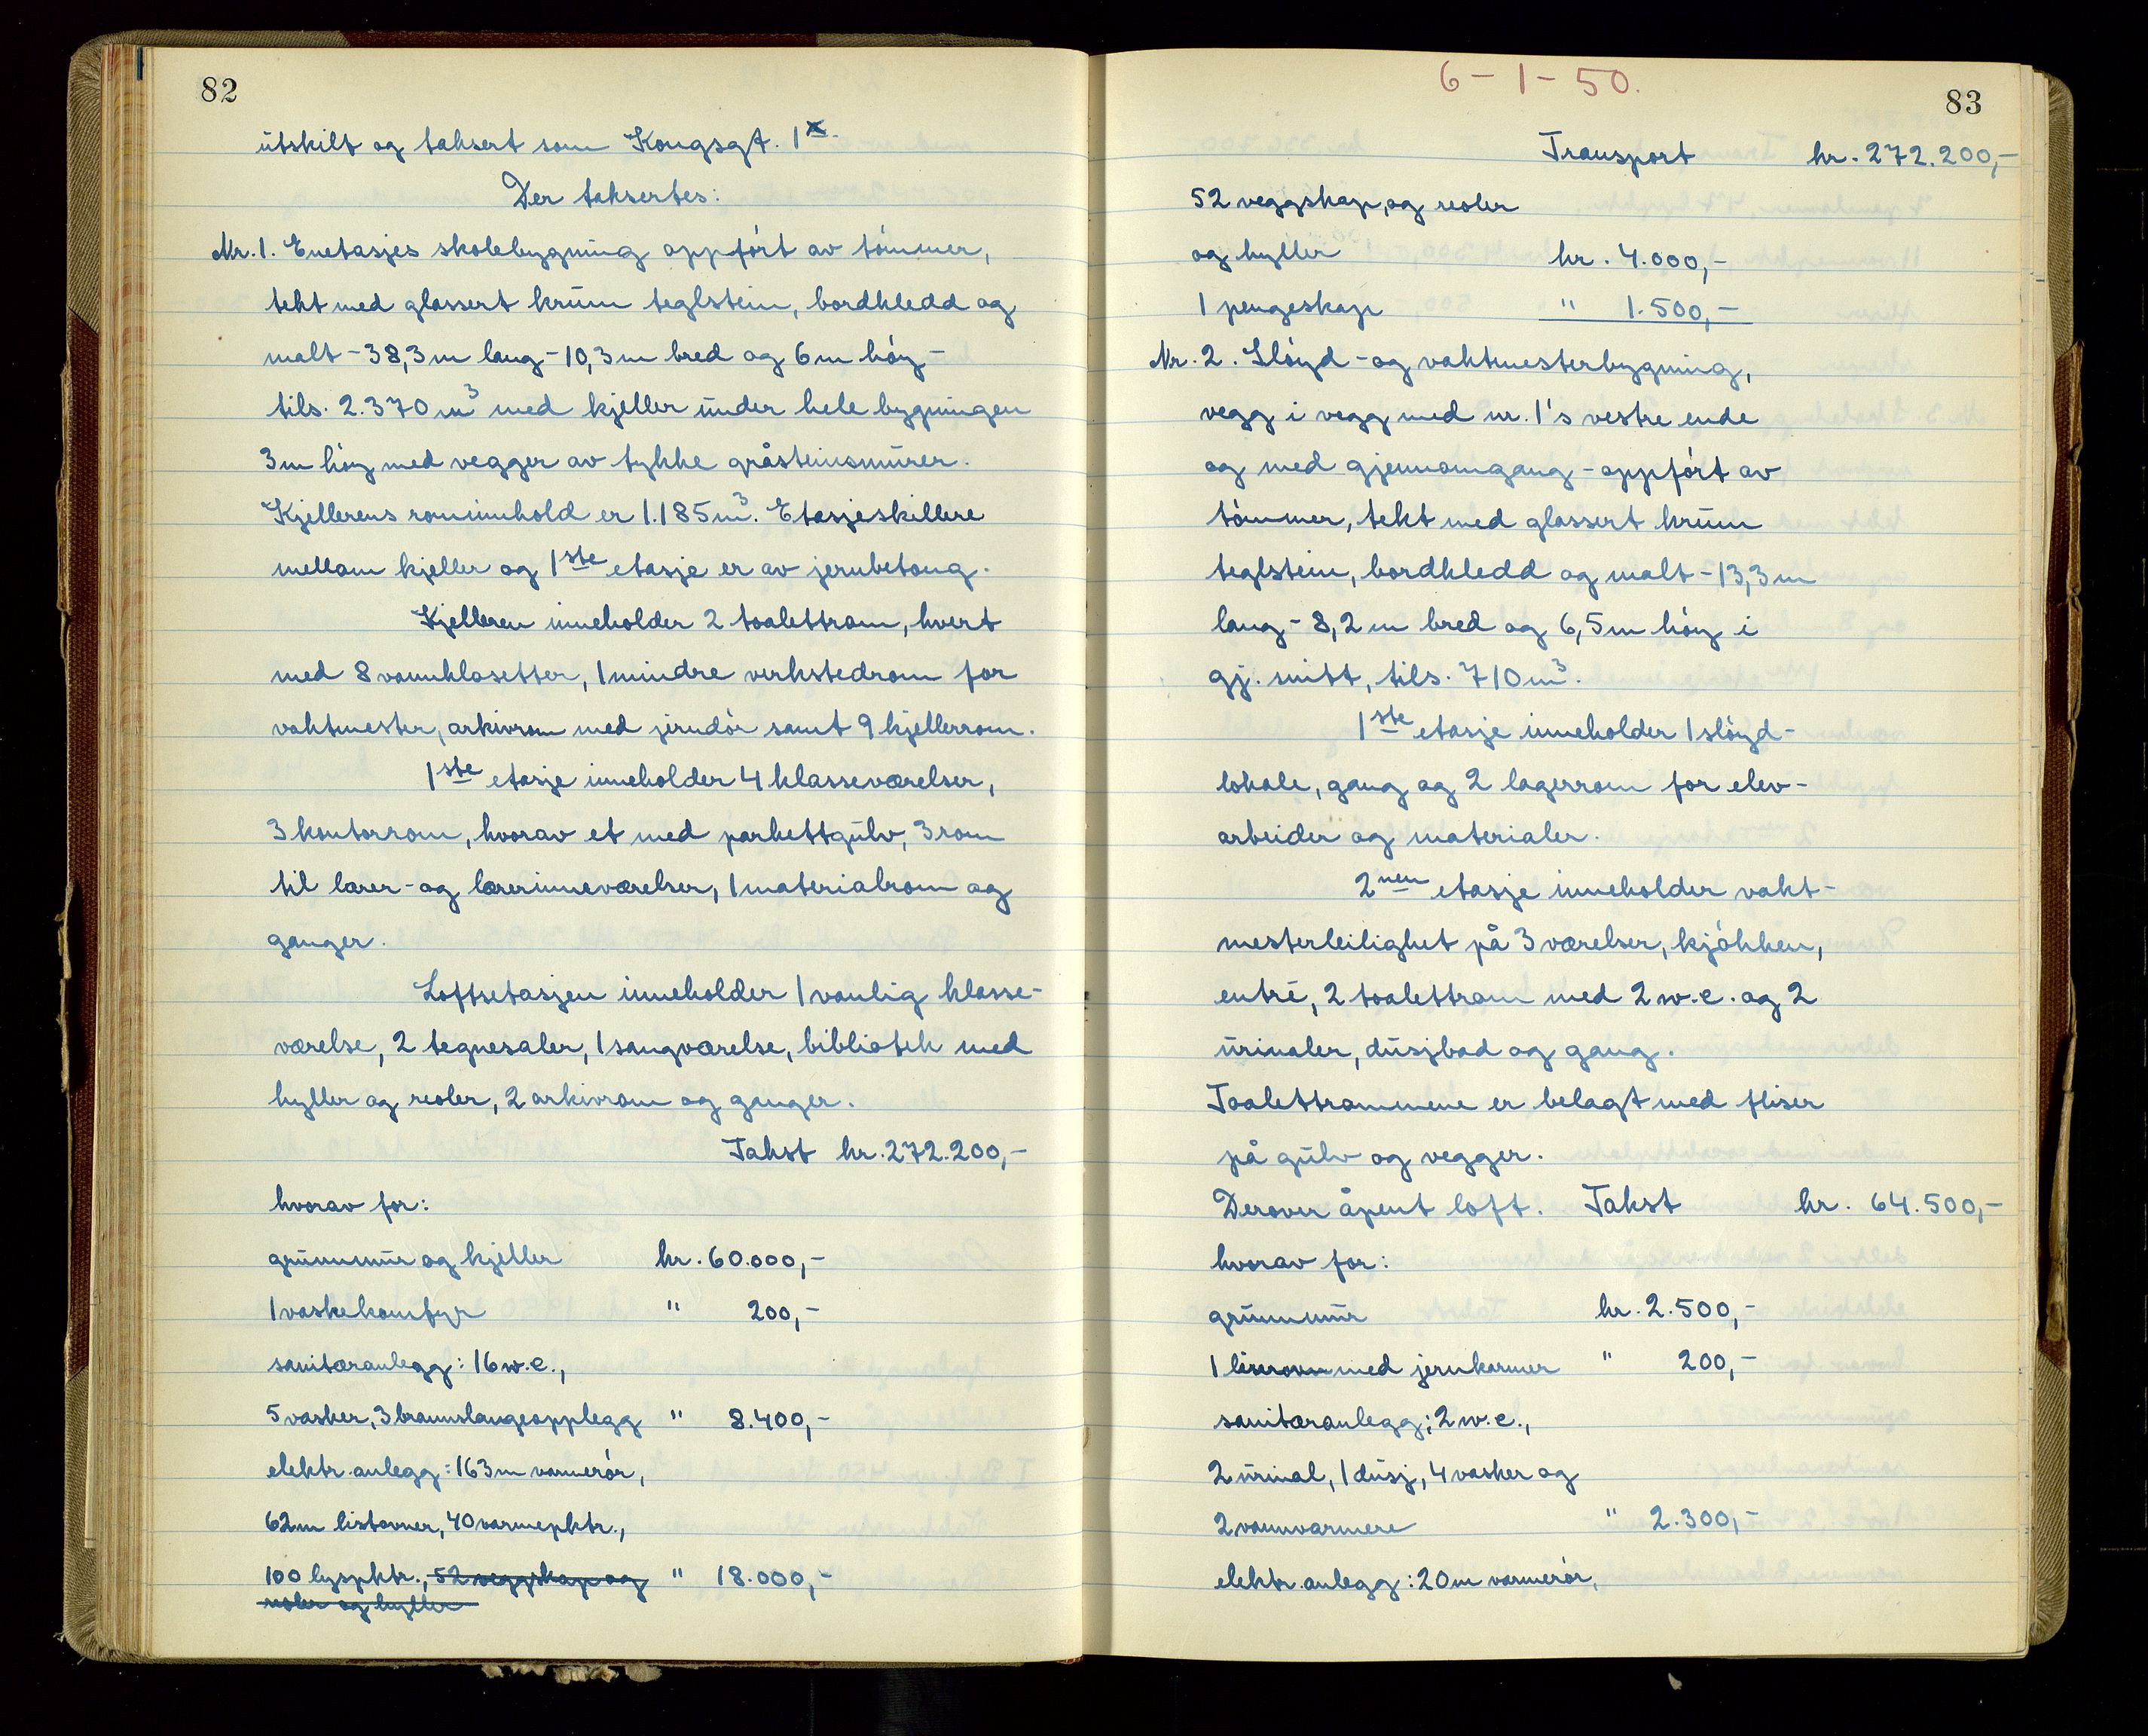 82
utskilt og taksert som Kongsgt. 1x.
Der taksertes:
Nr. 1. Enetasjes skolebygning oppført av tømmer,
tekt med glassert krum teglstein, bordkledd og
malt - 38,3 m lang - 10,3 m bred og 6 m høy -
tils. 2.370 m³ med kjeller under hele bygningen
3 m høy med vegger av tykke gråsteinsmurer.
Kjellerens rominnhold er 1.185 m³. Etasjeskillere
mellom kjeller og 1ste etasje er av jernbetong.
Kjelleren inneholder 2 toalettrom, hvert
med 8 vannklosetter, 1 mindre verkstedrom for
vaktmester, arkivrom med jerndør samt 9 kjellerrom.
1ste etasje inneholder 4 klasseværelser,
3 kontorrom, hvorav et med parkettgulv, 3 rom
til lærer- og lærerinneværelser, 1 materialrom og
ganger.
Loftsetasjen inneholder 1 vanlig klasse-
værelse, 2 tegnesaler, 1 sangværelse, bibliotek med
hyller og reoler, 2 arkivrom og ganger.
Takst kr. 272.200,-
hvorav for:
grunnmur og kjeller kr. 60.000,-
1 vaskekomfyr " 200,-
sanitæranlegg: 16 w.c.,
5 vasker, 3 brannslangeopplegg " 8.400,-
elektr. anlegg: 163 m varmerør,
62 m listovner, 40 varmepktr.,
100 lyspktr., 52 veggskap og " 18.000,-
reoler og hyller
6-1-50.
83
Transport kr. 272.200,-
52 veggskap, og reoler
og hyller kr. 4.000,-
1 pengeskap " 1.500,-
Nr. 2. Sløyd- og vaktmesterbygning,
vegg i vegg med nr. 1's vestre ende
og med gjennomgang - oppført av
tømmer, tekt med glassert krum
teglstein, bordkledd og malt - 13,3 m
lang - 8,2 m bred og 6,5 m høy i
gj. snitt, tils. 710 m³.
1ste etasje inneholder 1 sløyd-
lokale, gang og 2 lagerrom for elev-
arbeider og materialer.
2nen etasje inneholder vakt-
mesterleilighet på 3 værelser, kjøkken,
entré, 2 toalettrom med 2 w.c. og 2
urinaler, dusjbad og gang.
Toalettrommene er belagt med fliser
på gulv og vegger.
Derover åpent loft. Takst kr. 64.500,-
hvorav for:
grunnmur kr. 2.500,-
1 limovn med jernkarmer " 200,-
sanitæranlegg; 2 w.c.,
2 urinal, 1 dusj, 4 vasker og
2 vannvarmere " 2.300,-
elektr. anlegg: 20 m varmerør,